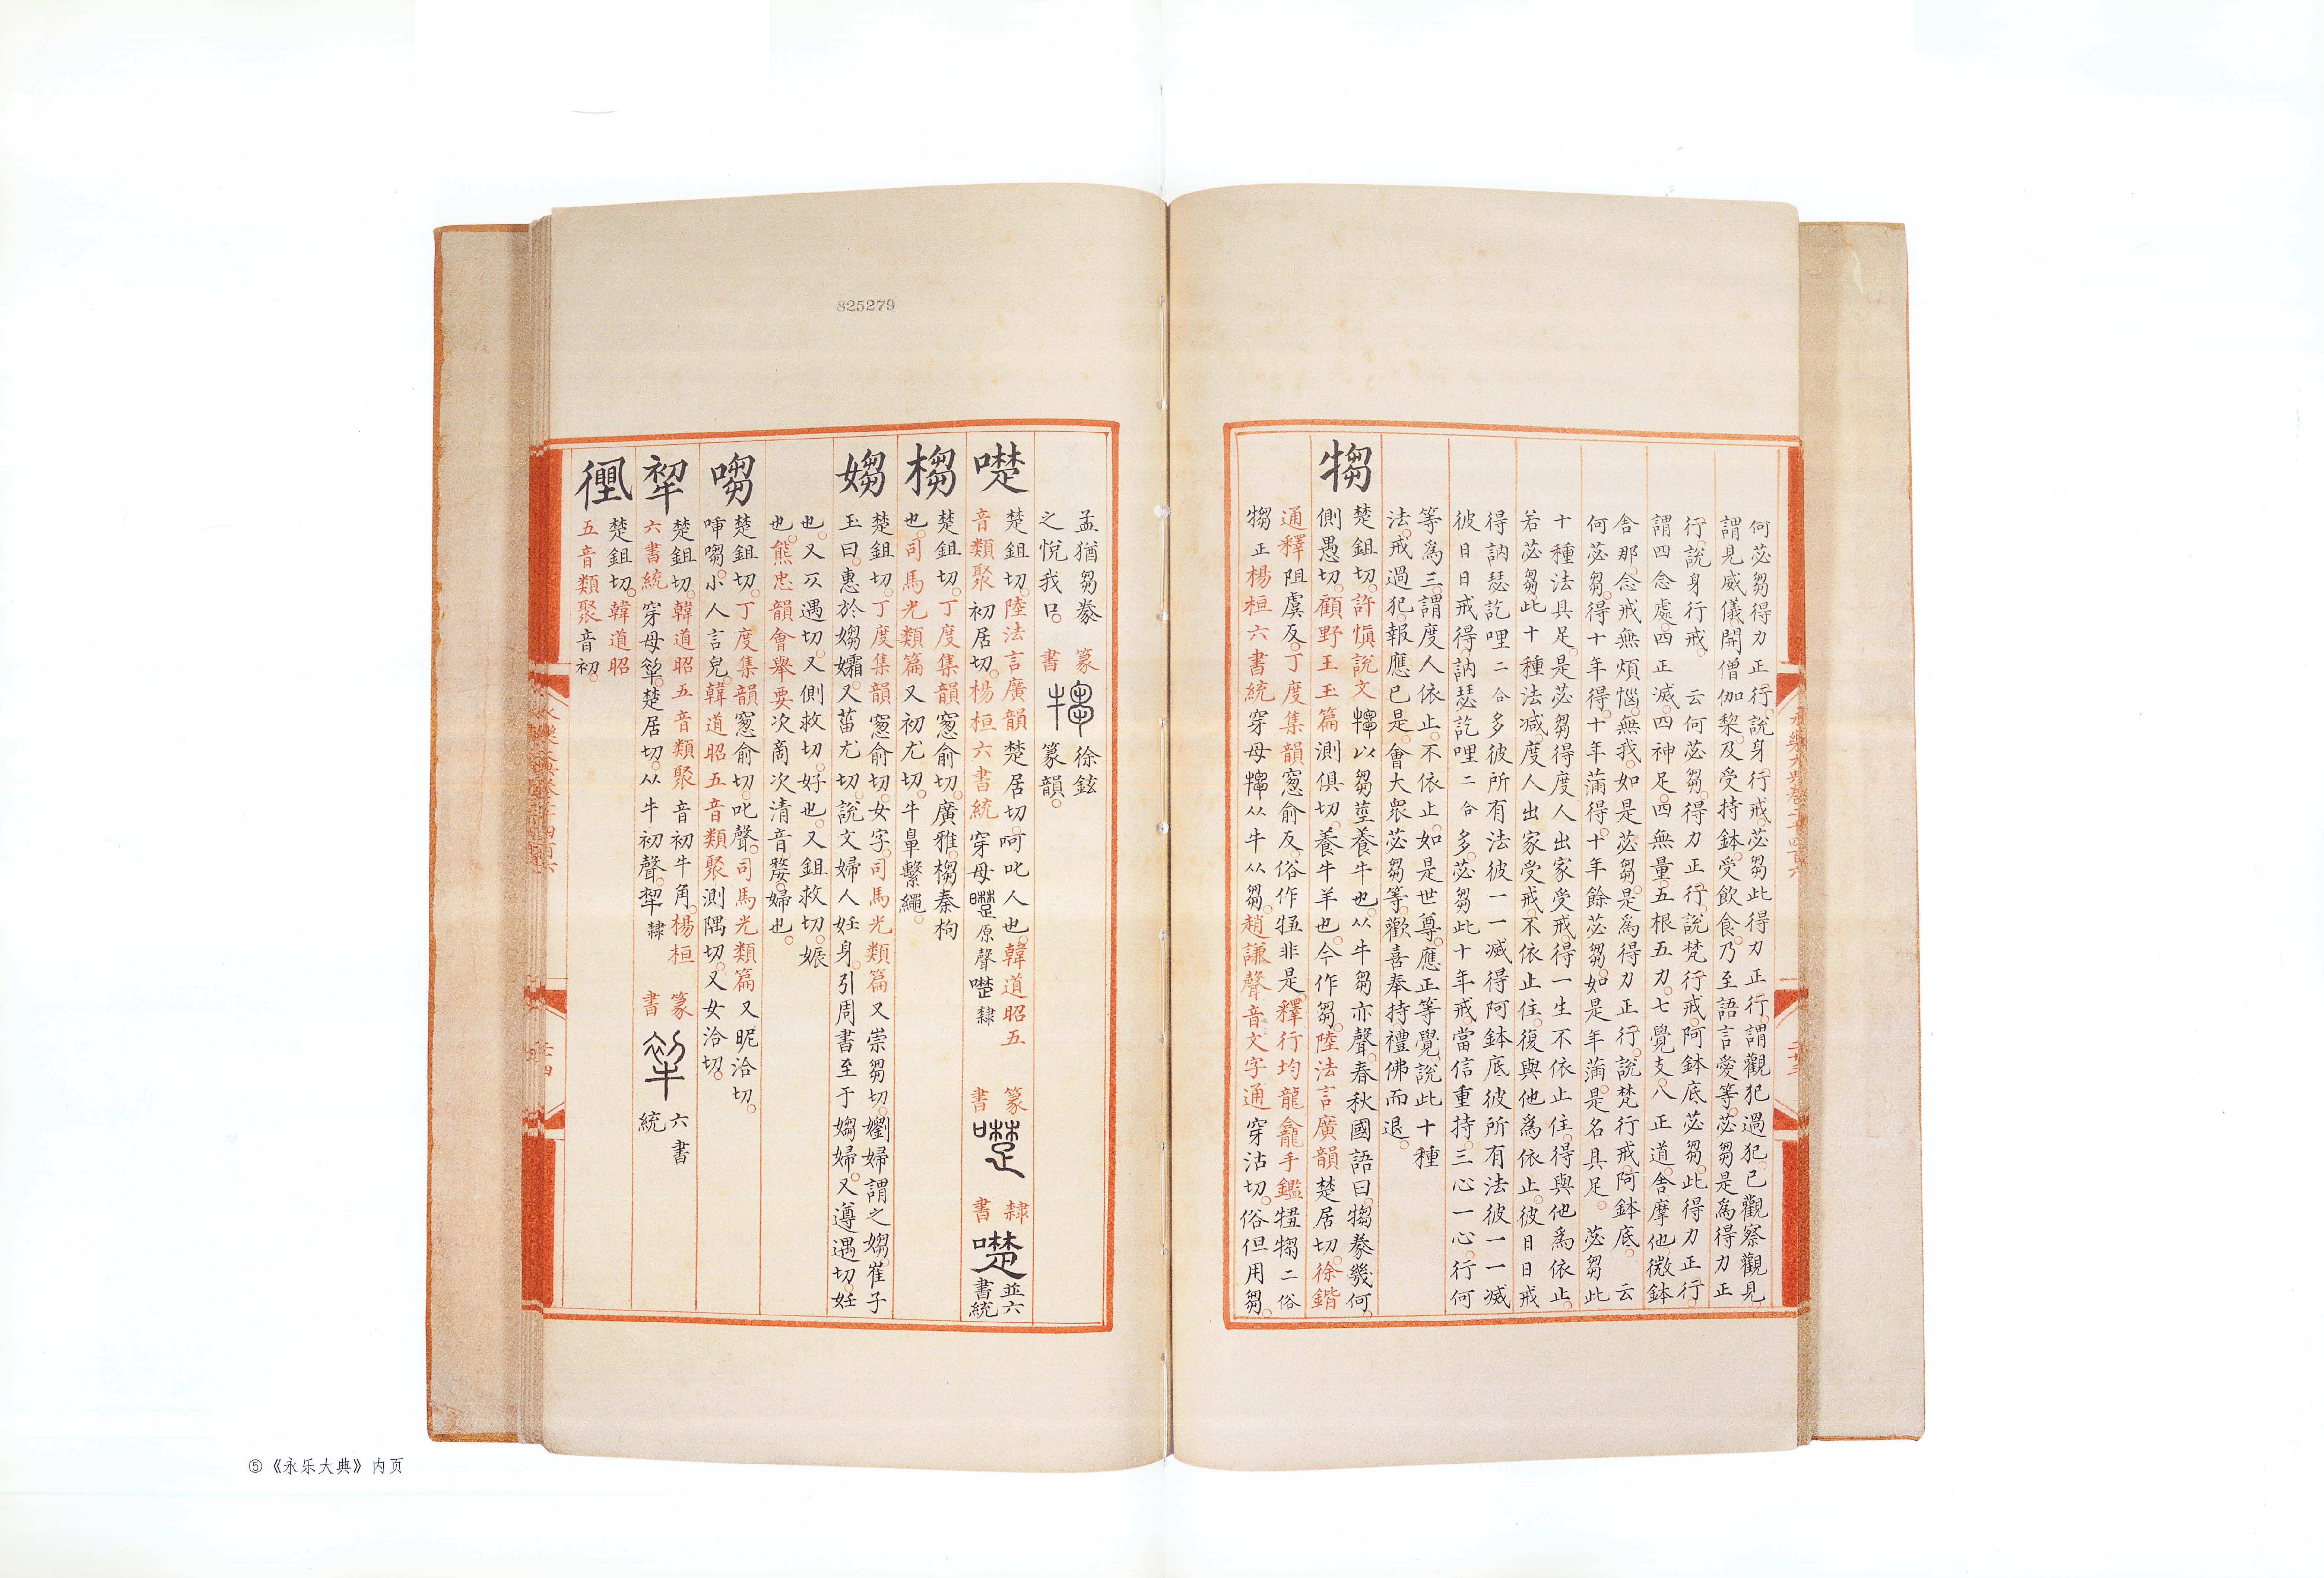 何苾芻得力正行說身行戒苾芻此得力正行謂觀犯過犯已觀察觀見
謂見威儀開僧伽棃及受持鉢受飲食乃至語言愛等苾芻是爲得力正
行說身行戒 云何苾芻得力正行說梵行戒阿鉢底苾芻此得力正行
謂四念處四正滅四神足四無量五根五力七覺支八正道舍摩他微鉢
舍那念戒無煩惱無我如是苾芻是爲得力正行說梵行戒阿鉢底 云
何苾芻得十年得十年滿得十年餘苾芻如是年滿是名具足 苾芻此
十種法具足是苾芻得度人出家受戒得一生不依止住得與他爲依止
若苾芻此十種法減度人出家受戒不依止住復與他爲依止彼日日戒
得訥瑟訖哩二合多彼所有法彼一一減得阿鉢底彼所有法彼一一減
彼日日戒得訥瑟訖哩二合多苾芻此十年戒當信重持三心一心行何
等爲三謂度人依止不依止如是世尊應正等覺說此十種
法戒過犯報應已是會大衆苾芻等歡喜奉持禮佛而退
犓
楚鉏切許慎說文犓以芻莖養牛也从牛芻芻亦聲春秋國語曰犓豢幾何
側愚切顧野王玉篇測俱切養牛羊也今作芻陸法言廣韻楚居切徐鍇
通釋阻虞反丁度集韻窻俞反俗作㸳非是釋行均龍龕手鑑㸳犓二俗
犓正楊桓六書統穿母犓从牛从芻趙謙聲音文字通穿沽切俗但用芻
孟猶芻豢 篆 徐鉉
之悅我口 書 犓 篆韻
㗰
楚鉏切陸法言廣韻楚居切呵叱人也韓道昭五 篆 隸 並六
音類聚初居切楊桓六書統穿母㗰原聲㗰隸 書 㗰 書 㗰 書統
㮲
楚鉏切丁度集韻窻俞切廣雅㮲桊枸
也司馬光類篇又初尤切牛鼻繫繩
媰
楚鉏切丁度集韻窻俞切女字司馬光類篇又崇芻切嬼婦謂之媰崔子
玉曰惠於媰孀又菑尤切說文婦人妊身引周書至于媰婦又遵遇切妊
也又仄遇切又側救切好也又鉏救切娠
也熊忠韻會舉要次商次清音嫠婦也
㗙
楚鉏切丁度集韻窻俞切叱聲司馬光類篇又昵洽切
㖠㗙小人言皃韓道昭五音類聚測隅切又女洽切
楚鉏切韓道昭五音類聚音初牛角楊桓 篆 六書
六書統穿母楚居切从牛初聲隸 書 統
楚鉏切韓道昭
五音類聚音初
825279
⑤《永乐大典》内页